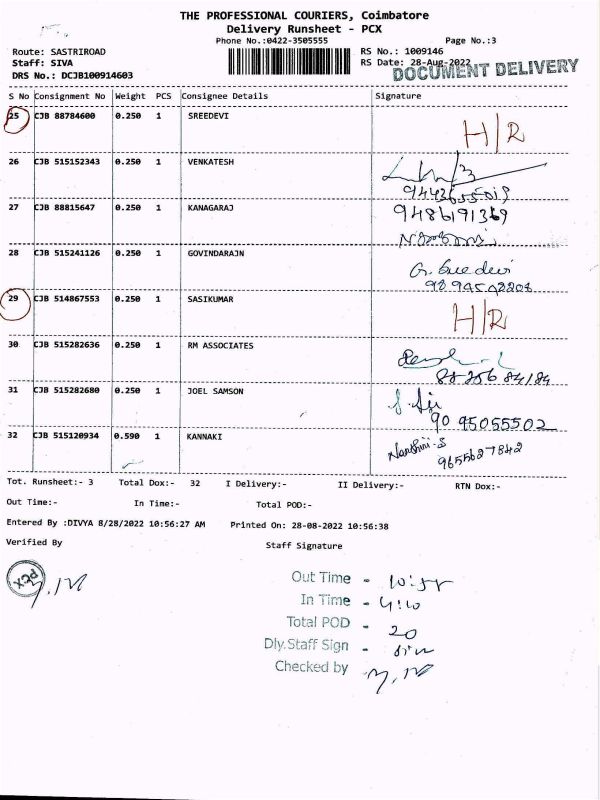 THE PROFESSIONAL COURIERS, Coimbatore
Delivery Runsheet - PCX
Phone No.:0422-3505555
Page No.:3
Route: SASTRIROAD
RS No.: 1009146
Staff: SIVA
RS Date: 28-Aug-2022
DOCUMENT DELIVERY
DRS No.: DCJB100914603
S No Consignment No Weight PCS Consignee Details Signature
25 CJB 88784600 0.250 1 SREEDEVI H/R
26 CJB 515152343 0.250 1 VENKATESH
27 CJB 88815647 0.250 1 KANAGARAJ 9486191369
28 CJB 515241126 0.250 1 GOVINDARAJN G. Sue devi
29 CJB 514867553 0.250 1 SASIKUMAR H/R
30 CJB 515282636 0.250 1 RM ASSOCIATES
31 CJB 515282680 0.250 1 JOEL SAMSON
90 95055502
32 CJB 515120934 0.590 1 KANNAKI Nanthini-S
9655627842
Tot. Runsheet:- 3 Total Dox:- 32 I Delivery:- II Delivery:- RTN Dox:-
Out Time:- In Time:- Total POD:-
Entered By :DIVYA 8/28/2022 10:56:27 AM Printed On: 28-08-2022 10:56:38
Verified By Staff Signature
PCX
Out Time - 10:55
In Time - 4:10
Total POD - 20
Dly.Staff Sign -
Checked by -